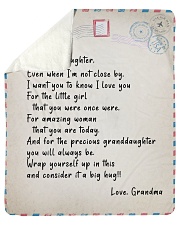 ughter,
Even when I'm not close by.
I want you to know I love you
For the little girl
that you were once were.
For amazing woman
that you are today.
And for the precious granddaughter
you will always be.
Wrap yourself up in this
and consider it a big hug!!
Love, Grandma